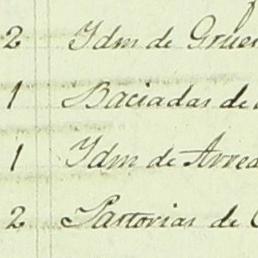 2 Idm de Grue
1 Baciadas de
1 Idm de Arre
2 Partorias de